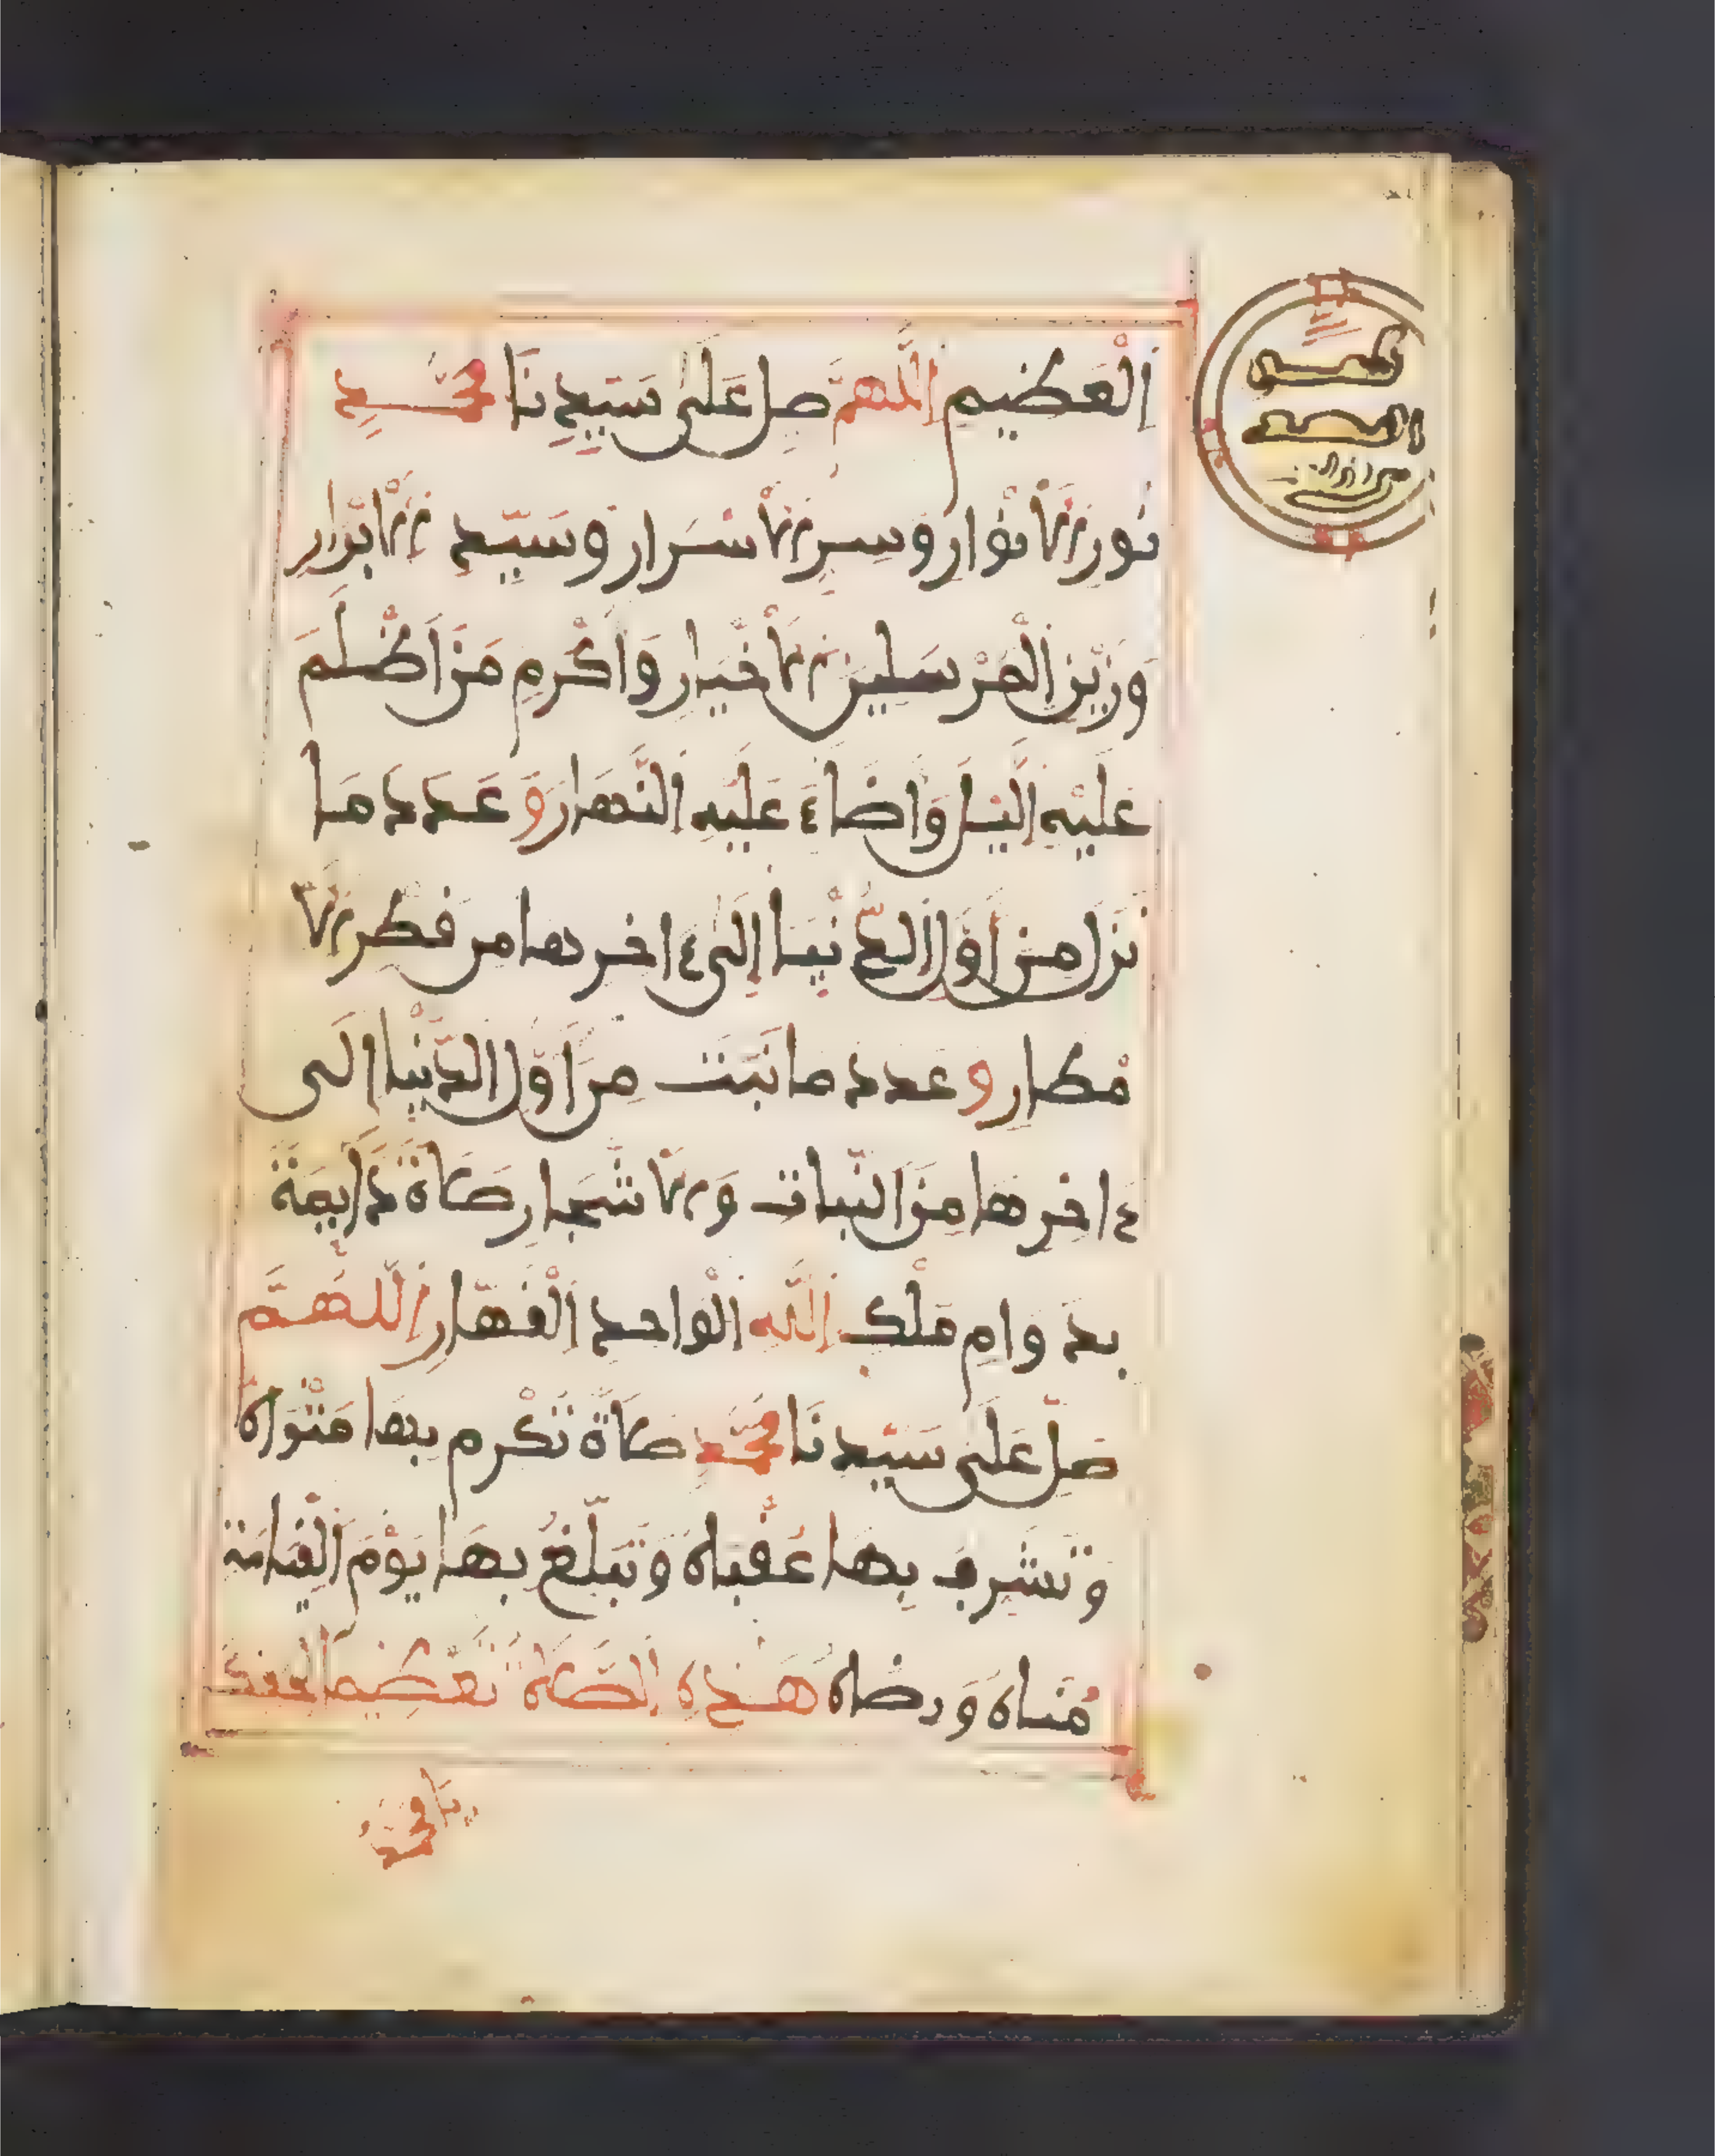 الْعَظِيمِ اللَّهُمَّ صَلِّ عَلَى سَيِّدِنَا مُحَمَّدٍ
نُورِ الْأَنْوَارِ وَسِرِّ الْأَسْرَارِ وَسَيِّدِ الْأَبْرَارِ
وَزَيْنِ الْمُرْسَلِينَ الْأَخْيَارِ وَأَكْرَمِ مَنْ أَظْلَمَ
عَلَيْهِ الَّيْلُ وَأَضَاءَ عَلَيْهِ النَّهَارُ وَعَدَدَ مَا
نَزَلَ مِنْ أَوَّلِ الدُّنْيَا إِلَى ءَاخِرِهَا مِن قَطْرِ الْأَ
مْطَارِ وَعَدَدَ مَا نَبَتَ مِنْ أَوَّلِ الدُّنْيَا إِلَى
ءَاخِرِهَا مِنَ النَّبَاتِ وَالْأَشْجَارِ صَلَاةً دَائِمَةً
بِدَوَامِ مُلْكِ اللَّهِ الْوَاحِدِ الْقَهَّارِ اللَّهُمَّ
صَلِّ عَلَى سَيِّدِنَا مُحَمَّدٍ صَلَاةً تُكْرِمُ بِهَا مَثْوَاهُ
وَتُشَرِّفُ بِهَا عُقْبَاهُ وَتُبَلِّغُ بِهَا يَوْمَ الْقِيَامَةِ
مُنَاهُ وَرِضَاهُ هَذِهِ الصَّلَاةُ تَعْظِيمًا لِحَقِّكَ
يَا مُحَمَّدُ